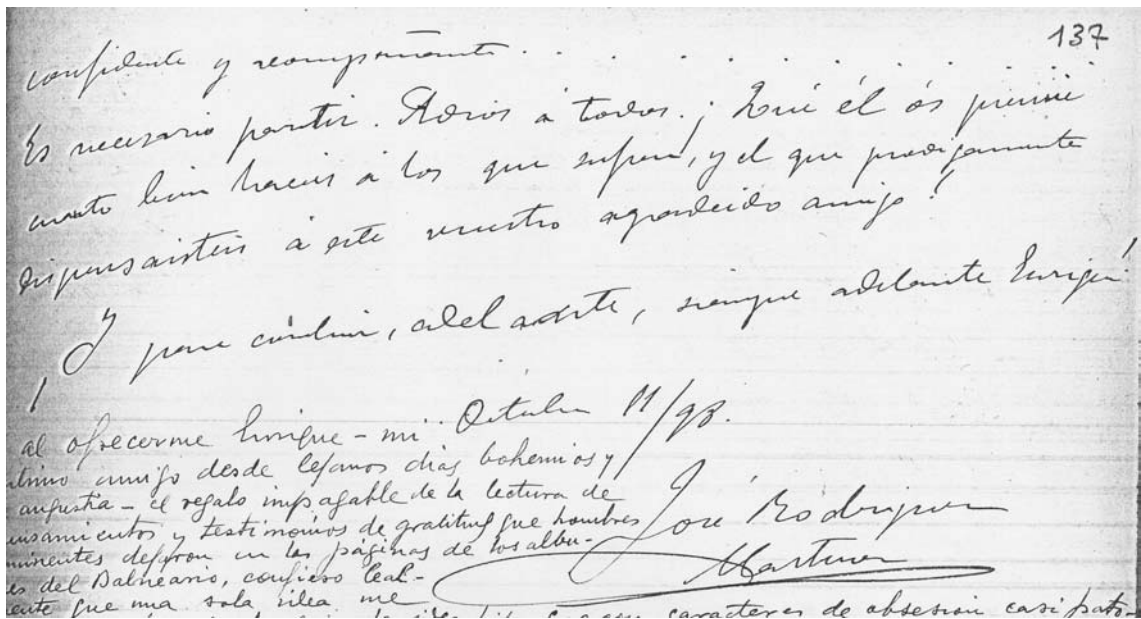 137
confidente y
Es necesario partir. Adios á todos. ¡ Qué él ós premie
cuanto bien haceis á los que sufren, y el que prodigamente
dispensasteis á este vuestro agradecido amigo!
Y para concluir, adelante, siempre adelante Enrique!
Octubre 11/98.
José Rodriguez
Martinez
al ofrecerme Enrique - mi
amigo desde lejanos dias bohemios y
angustia - el regalo impagable de la lectura de
y testimonios de gratitud que hombres
dejaron en las páginas de los albu-
es del Balneario, confieso leal-
ente que una sola idea me
caracteres de obsesion casi pato-